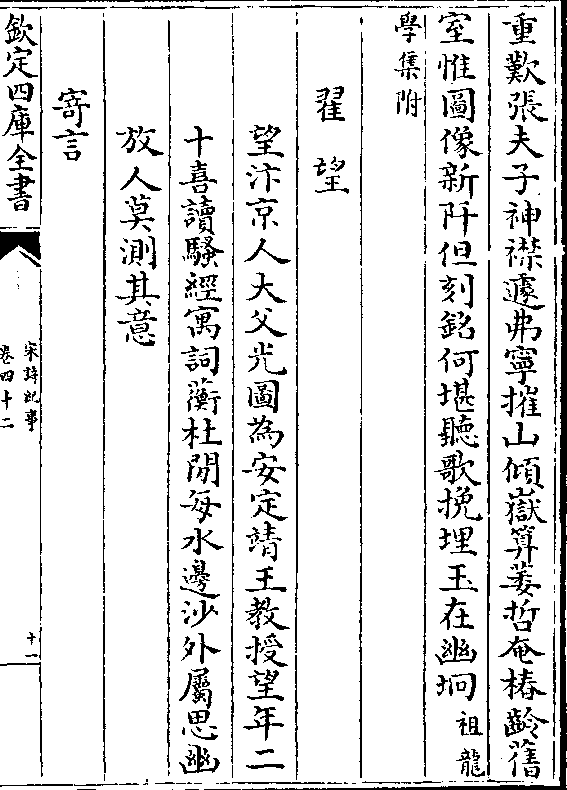 重歎張夫子神襟遽弗寧摧山傾嶽算萎哲奄椿齡舊
室惟圖像新阡但刻銘何堪聽歌挽埋玉在幽坰 祖龍
學集附
翟望
望汴京人大父光圖為安定靖王教授望年二
十喜讀騷經寓詞蘅杜間每水邊沙外屬思幽
放人莫測其意
寄言
欽定四庫全書
宋詩紀事
卷四十二
十一